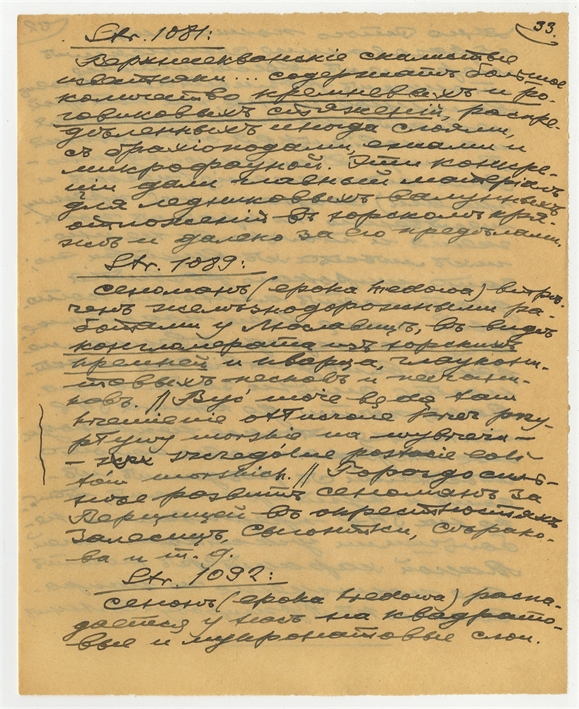 33.
Str. 1081:
Верхнесекванскіе скалистые
известняки ... содержатъ большое
количество кремневыхъ и ро-
говиковыхъ стяженій, распре-
дѣленныхъ иногда слоями,
съ брахіоподами, ежами и
микрофауной. Эти конкре-
ціи дали главный матеріалъ
для ледниковыхъ валунныхъ
отложеній въ юрскомъ кря-
жѣ и далеко за его предѣлами.
Str. 1089:
Сеноманъ (epoka kredowa) встрѣ-
ченъ желѣзнодорожными ра-
ботами у Мюславицъ, въ видѣ
конгломерата изъ юрскихъ
кремней и кварца, глаукони-
товыхъ песковъ и песчани-
ковъ. // Być może będą tam
krzemienie otoczone przez przy-
pływy morskie na wybrzeża-
szczególne postacie
tam morskich. // Гораздо силь-
ное развитъ сеноманъ за
Верщицей въ окрестностяхъ
Залесицъ, Сыгонтки, Сѣрако-
ва и т. д.
Str. 1092:
Сенонъ (epoka kredowa) распа-
дается у насъ на квадрато-
вые и мукронатовые слои.